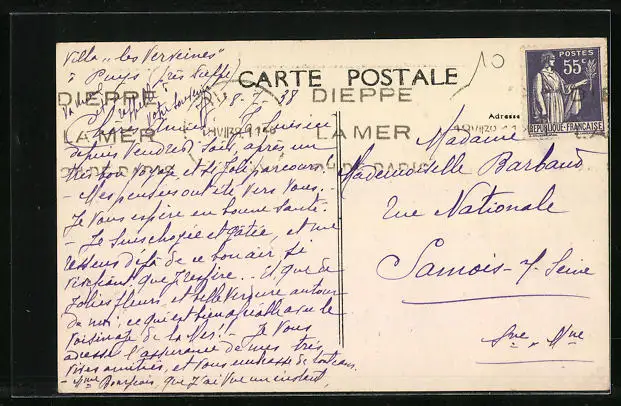 Villa "les Verveines"
à Puys (près Dieppe)
CARTE POSTALE
8-7-38
DIEPPE
LA MER
DIEPPE
LA MER
POSTES
55c
REPUBLIQUE FRANÇAISE
10
Adresse
depuis Vendredi soir, après un
très bon voyage et si joli parcours!
- Mes pensées ont été vers vous..
Je vous espère en bonne santé.
- Je suis choyée et gâtée, et me
ressens déjà de ce bon air si
vivifiant que j'respire.. Et que de
jolies fleurs, et belle verdure autour
de moi; ce qui est bien agréable avec le
voisinage de la Mer! - Je vous
adresse l'assurance de mes très
vives amitiés, et vous embrasse
que j'ai vue un instant,
Madame
Mademoiselle Barbaud
rue Nationale
Samois-s/-Seine
Sne-Mne